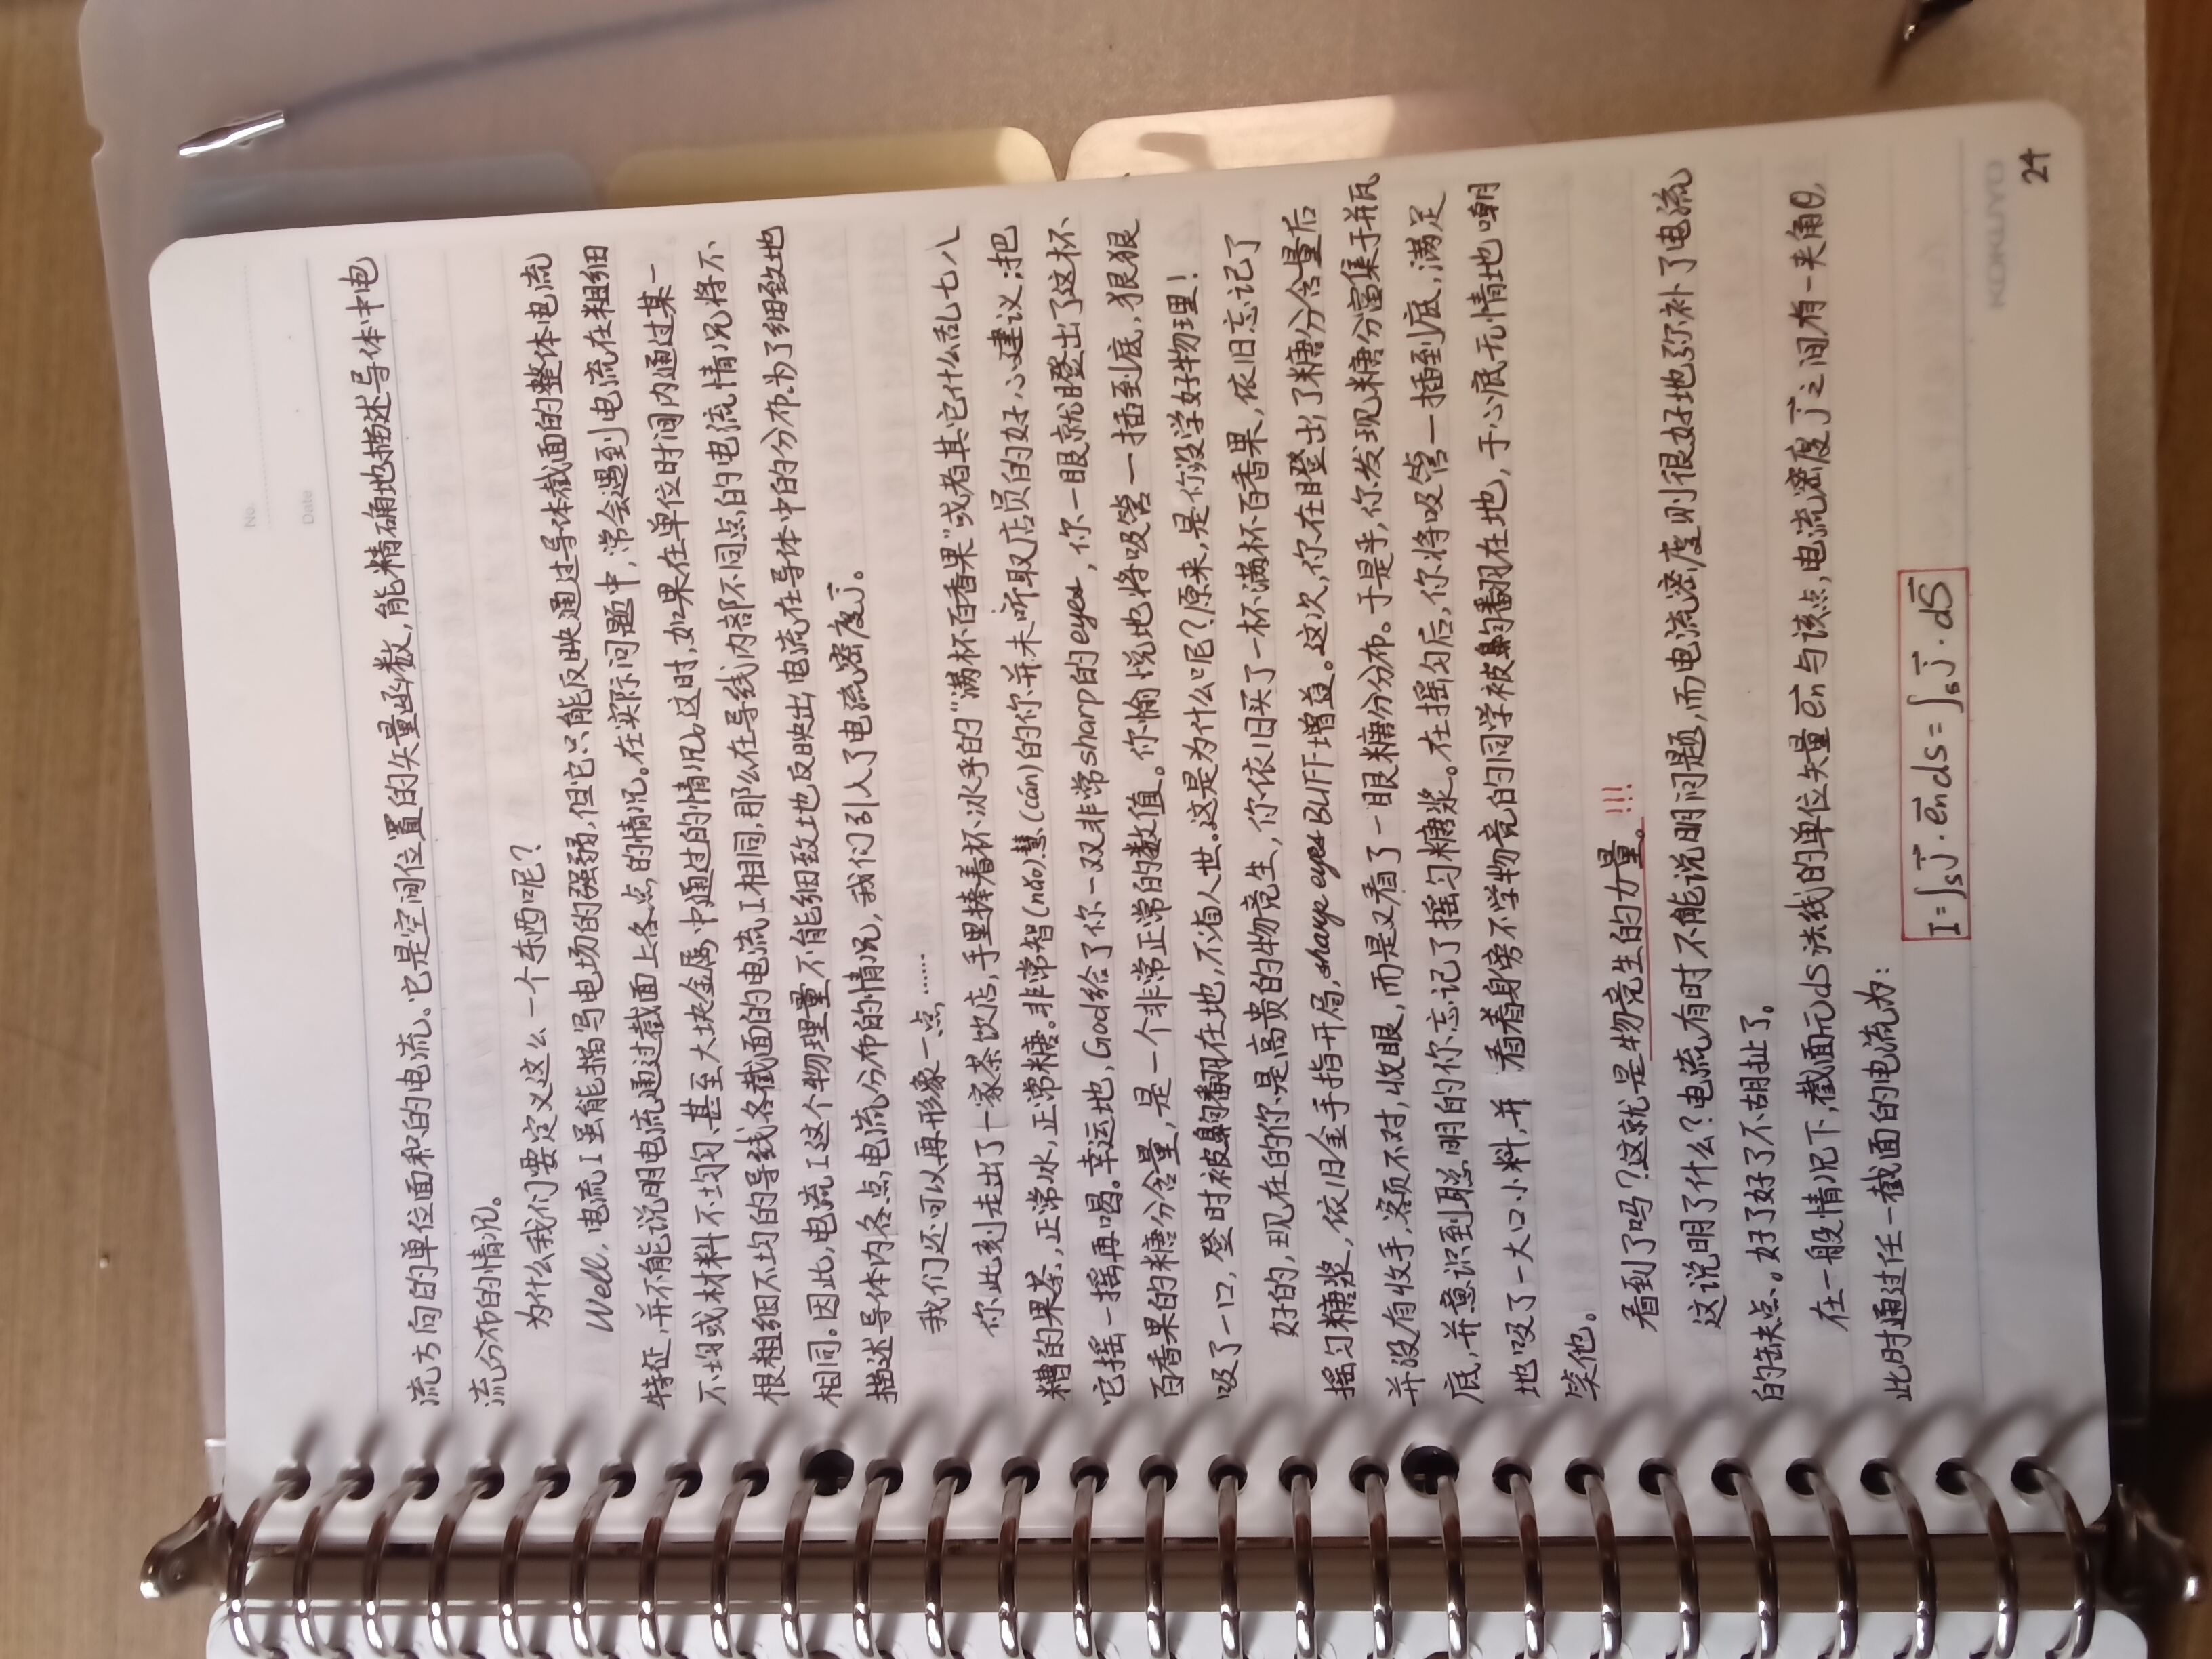 No.
Date
流方向的单位面积的电流。它是空间位置的矢量函数,能精确地描述导体中电
流分布的情况。
为什么我们要定义这么一个东西呢?
Well,电流I虽能描写电场的强弱,但它只能反映通过导体截面的整体电流
特征,并不能说明电流通过截面上各点的情况。在实际问题中,常会遇到电流在粗细
不均或材料不均匀、甚至大块金属中通过的情况。这时,如果在单位时间内通过某一
根粗细不均的导线各截面的电流I相同,那么在导线内部不同点的电流情况将不
相同。因此,电流I这个物理量不能细致地反映出电流在导体中的分布.为了细致地
描述导体内各点电流分布的情况,我们引入了电流密度j⃗。
我们还可以再形象一点……
你此刻走出了一家茶饮店,手里捧着杯冰乎的"满杯百香果"或者其它什么乱七八
糟的果茶,正常冰,正常糖。非常智(nǎo)慧(cán)的你并未听取店员的好心建议:把
它摇一摇再喝。幸运地,God给了你一双非常sharp的eyes,你一眼就瞪出了这杯
百香果的糖分含量,是一个非常正常的数值。你愉悦地将吸管一插到底,狠狠
吸了一口,登时被齁翻在地,不省人世。这是为什么呢?原来,是你没学好物理!
好的,现在的你是高贵的物竞生,你依旧买了一杯满杯百香果,依旧忘记了
摇匀糖浆,依旧金手指开局,sharp eyes BUFF增益。这次,你在瞪出了糖分含量后
并没有收手,客页不对,收眼,而是又看了一眼糖分分布。于是乎,你发现糖分富集于瓶
底,并意识到聪明的你忘记了摇匀糖浆。在摇匀后,你将吸管一插到底,满足
地吸了一大口小料,并 看着身旁不学物竞的同学被齁翻在地,于心底无情地嘲
笑他。
看到了吗?这就是物竞生的力量。!!!
这说明了什么?电流有时不能说明问题,而电流密度则很好地弥补了电流
的缺点。好了好了不胡扯了。
在一般情况下,截面元ds法线的单位矢量e⃗n与该点电流密度j⃗之间有一夹角θ,
此时通过任一截面的电流为:
I=∫ₛj⃗·e⃗nds=∫ₛj⃗·dS⃗
KOKUYO
24